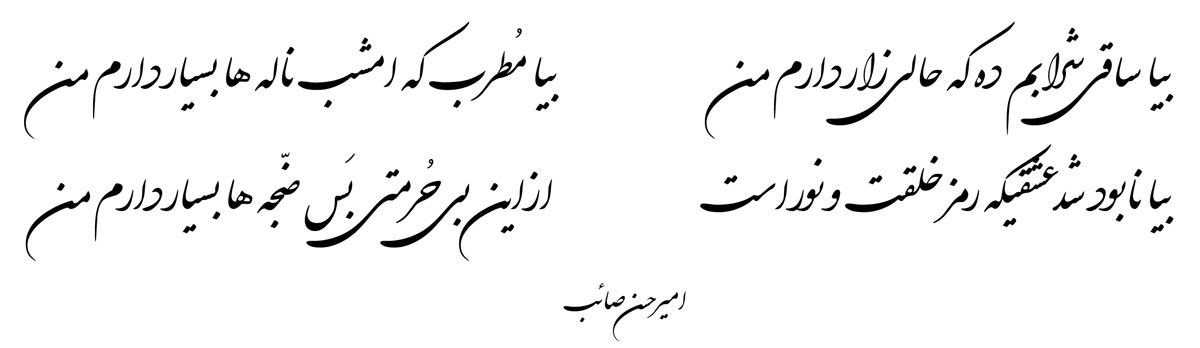 بیا ساقی شرابم ده که حالی زار دارم من بیا مُطرب که امشب ناله ها بسیار دارم من
بیا نابود شد عشقیکه رمز خلقت و نور است از این بی حُرمتی بَس ضجّه ها بسیار دارم من
امیرحسن صائب